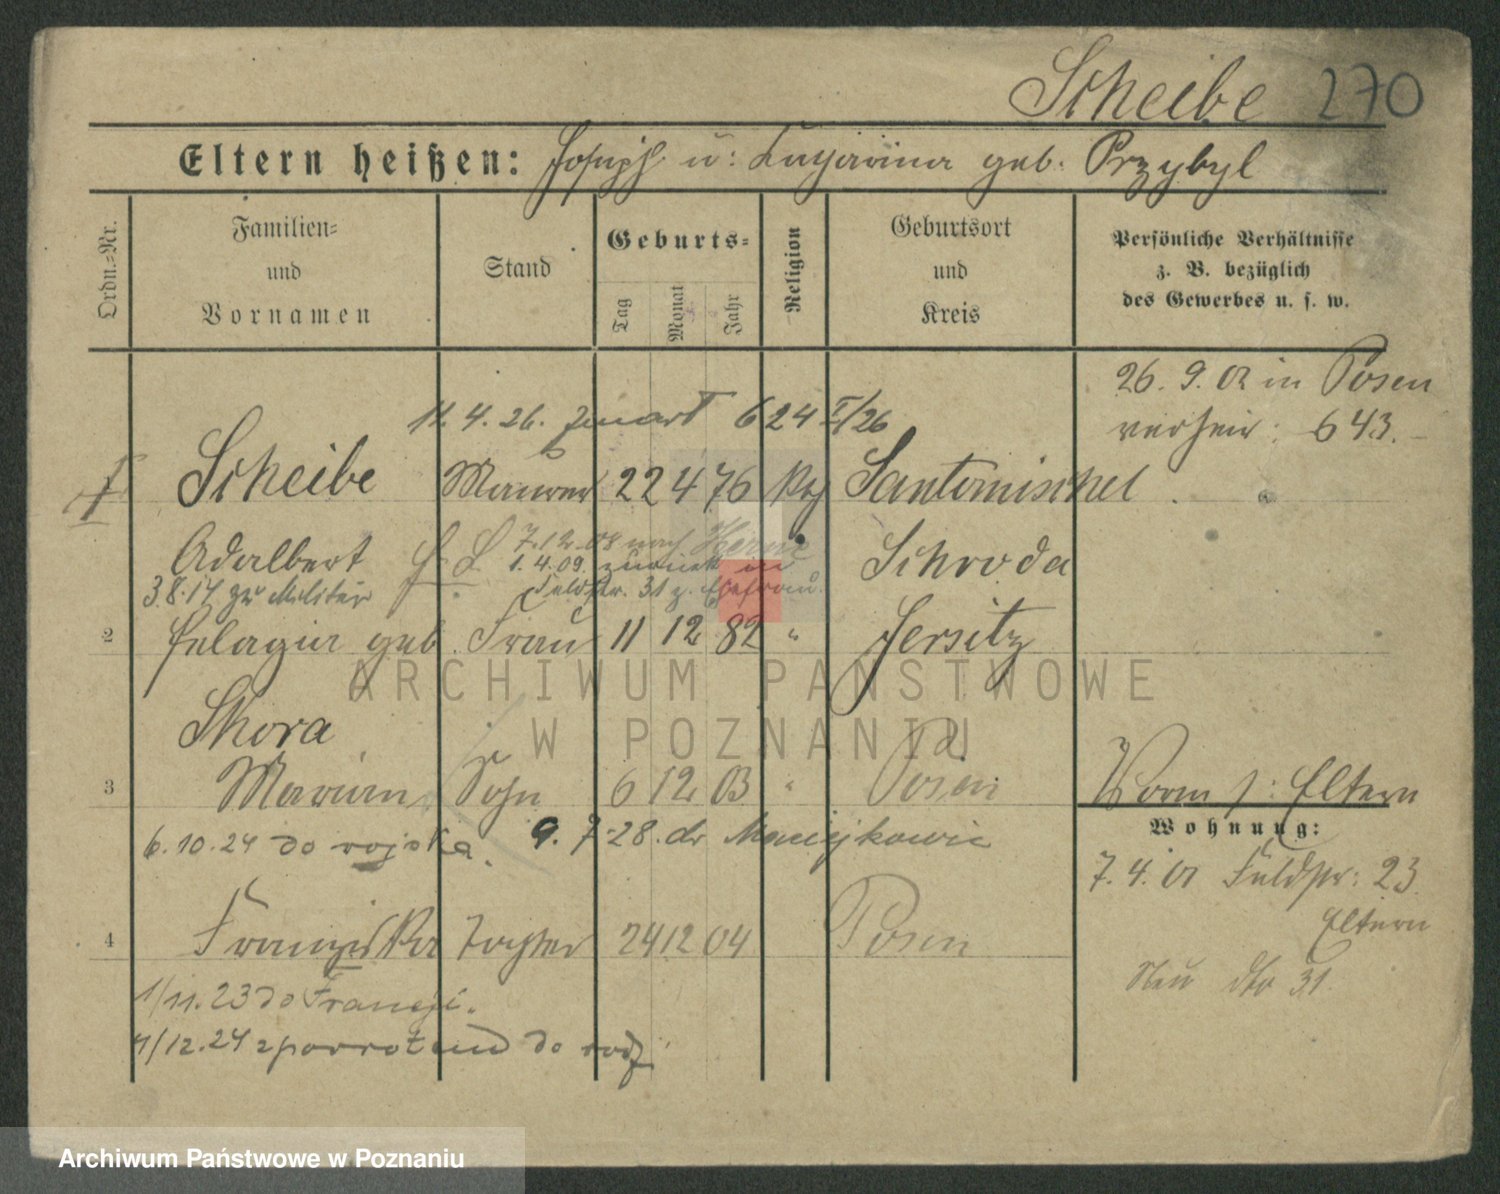 Scheibe 270
Eltern heißen: Joseph u: Catharina geb. Przybyl
Ordn.-Nr.
Familien-
und
Vornamen
Stand
Geburts-
Tag
Monat
Jahr
Religion
Geburtsort
und
Kreis
Persönliche Verhältnisse
z. B. bezüglich
des Gewerbes u. s. w.
26. 9. 02 in Posen
verheir: 643.
11. 4. 26. zmarł 624 /26
Scheibe Maurer 22 4 76 Santomischel
Adalbert 7.12.08 nach Herne Schroda
1. 4. 09. zurück in
3.8.17 zu Militär Feldstr. 31 z. Ehefrau.
2 Pelagia geb. Frau 11 12 82 " Jersitz
Skora
3 Marian Sohn 6 12 03 " Posen Worm s: Eltern
6.10.24 do wojska. 9. 7-28. do
Wohnung:
7. 4. 01 Feldstr: 23
Eltern
4 Franziska Tochter 24 12 04 Posen
Neu dto 31.
1/11.23 do Francji.
1/12.24 z powrotem do rodz.
ARCHIWUM PAŃSTWOWE
W POZNANIU
Archiwum Państwowe w Poznaniu